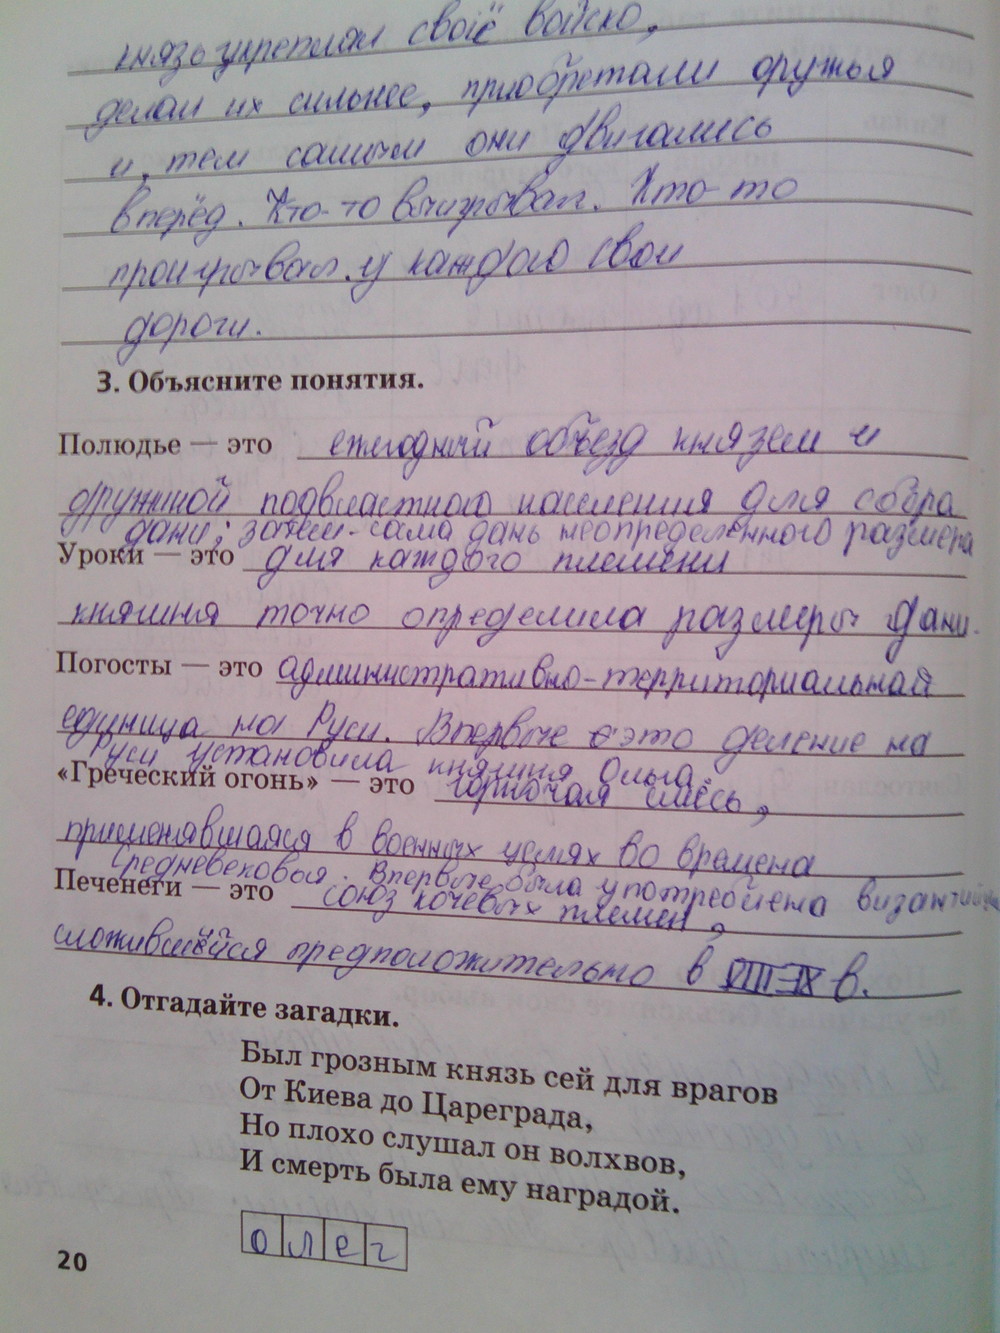 князь укреплял своё войско,
делал их сильнее, приобретали оружья
и тем самым они двигались
вперёд. Кто-то выигрывал. Кто-то
проигрывал у каждого свои
дороги.
3. Объясните понятия.
Полюдье — это ежегодный объезд князем и
дружиной подвластного населения для сбора
дани; затем - сама дань неопределенного размера
Уроки — это для каждого племени
княгиня точно определила размеры дани.
Погосты — это административно-территориальная
единица на Руси. Впервые это деление на
Руси установила княгиня Ольга.
«Греческий огонь» — это горючая смесь,
применявшаяся в военных целях во времена
Средневековья. Впервые была употреблена
Печенеги — это союз кочевых племен,
сложившийся предположительно в VIII-IX в.
4. Отгадайте загадки.
Был грозным князь сей для врагов
От Киева до Цареграда,
Но плохо слушал он волхвов,
И смерть была ему наградой.
олег
20